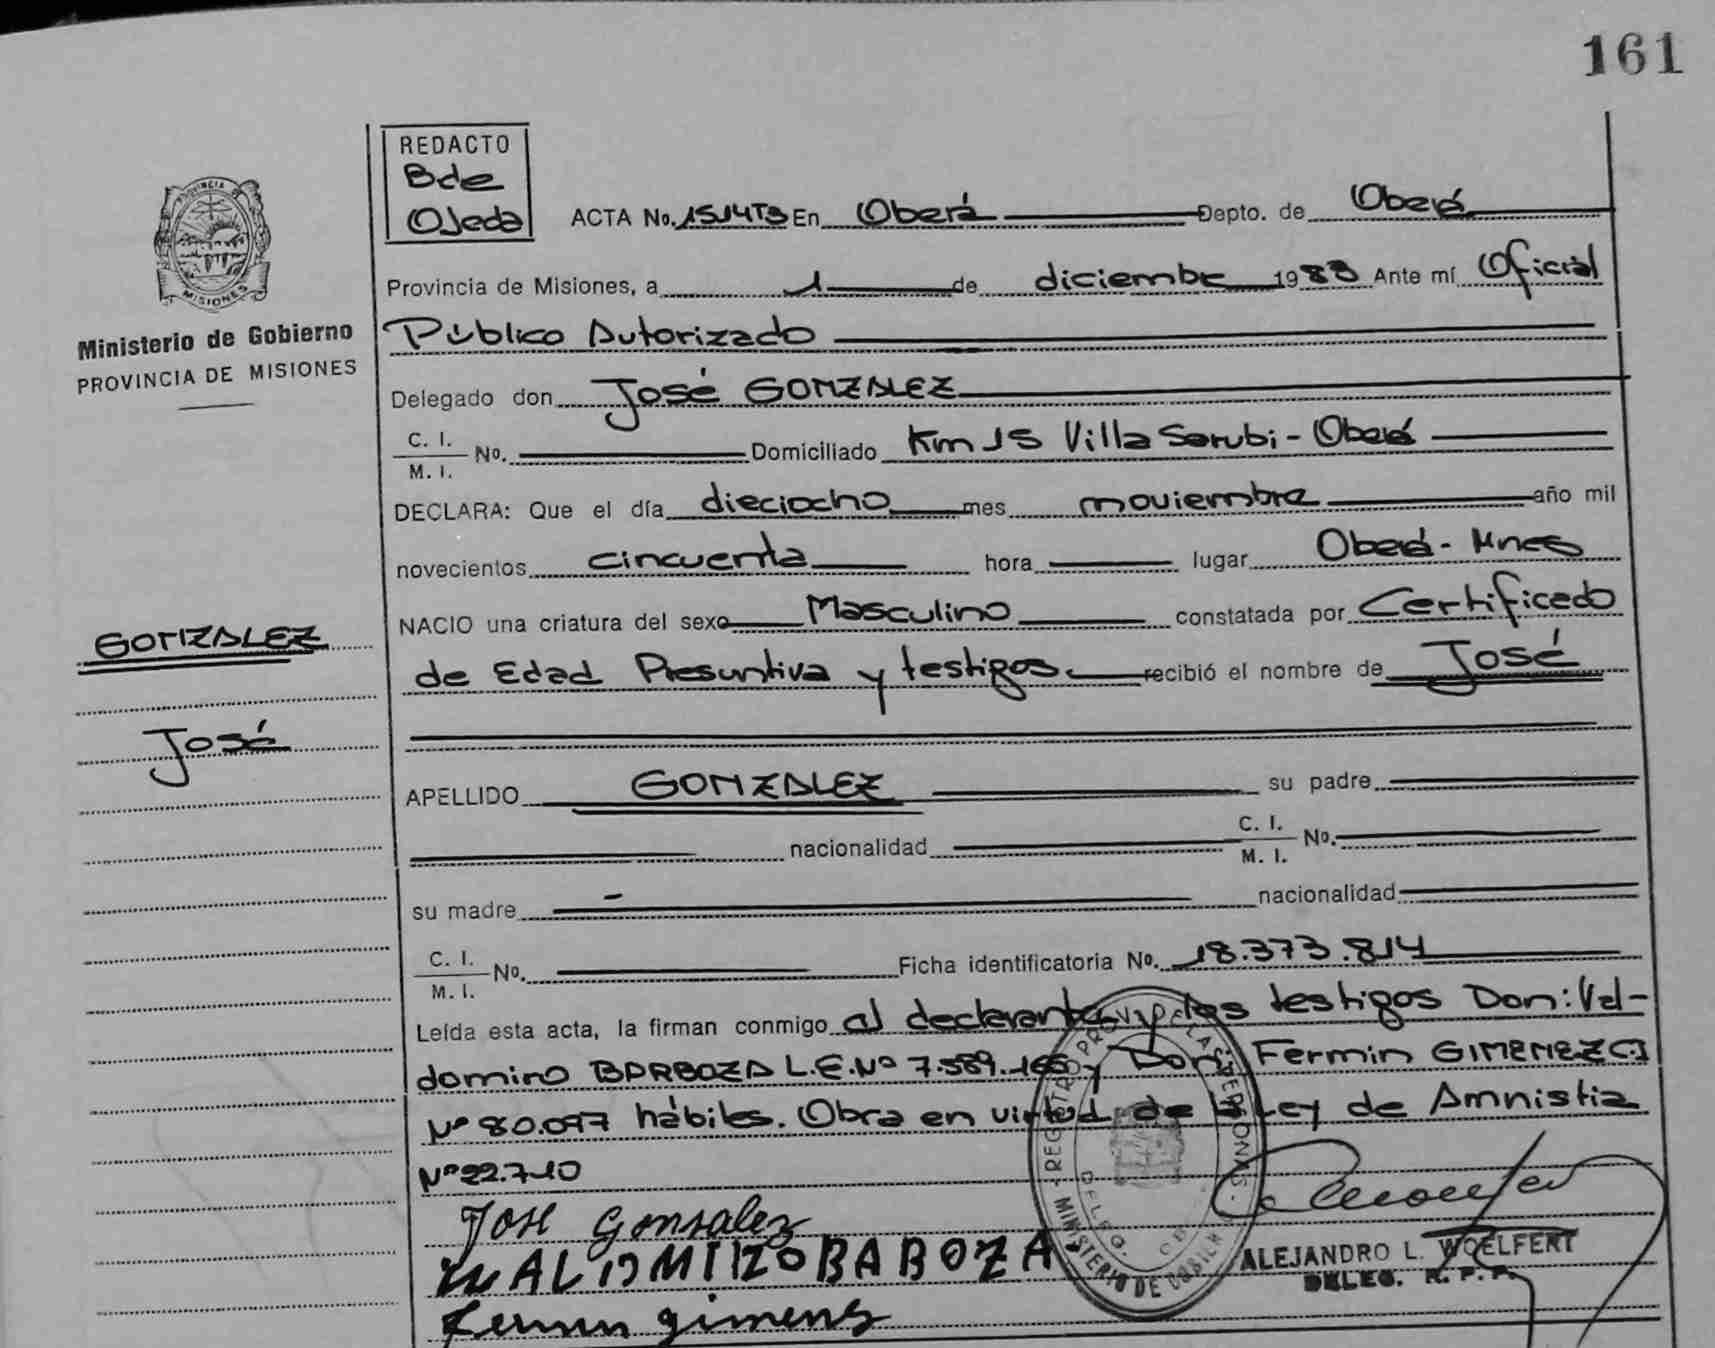 161
REDACTO
Bde
Ojeda
ACTA No. 1514T3 En Oberá Depto. de Oberá
Provincia de Misiones, a 1 de diciembre 1988 Ante mí Oficial
Público Autorizado
Delegado don José GONZALEZ
C. I.
M. I. No. Domiciliado Km 15 Villa Sarubi - Oberá
DECLARA: Que el día dieciocho mes noviembre año mil
novecientos cincuenta hora lugar Oberá - Mnes
NACIO una criatura del sexo Masculino constatada por Certificado
de Edad Presuntiva y testigos recibió el nombre de José
APELLIDO GONZALEZ su padre
nacionalidad C. I.
M. I. No.
su madre nacionalidad
C. I.
M. I. No. Ficha identificatoria No. 18.373.814
Leída esta acta, la firman conmigo al declarante y los testigos Don: Val-
domiro BARBOZA L.E. Nº 7.589.165 y Don: Fermin GIMENEZ C.I
Nº 80.097 hábiles. Obra en virtud de la Ley de Amnistia
Nº 22.710
José Gonsalez
WALDMIRO BABOZA
Fermin gimens
PROVINCIA DE
MISIONES
Ministerio de Gobierno
PROVINCIA DE MISIONES
GONZALEZ
José
REGISTRO PROV. DE LAS PERSONAS
MINISTERIO DE GOBIERNO
DELEG.
ALEJANDRO L. WOELFERT
DELEG. R. P. P.